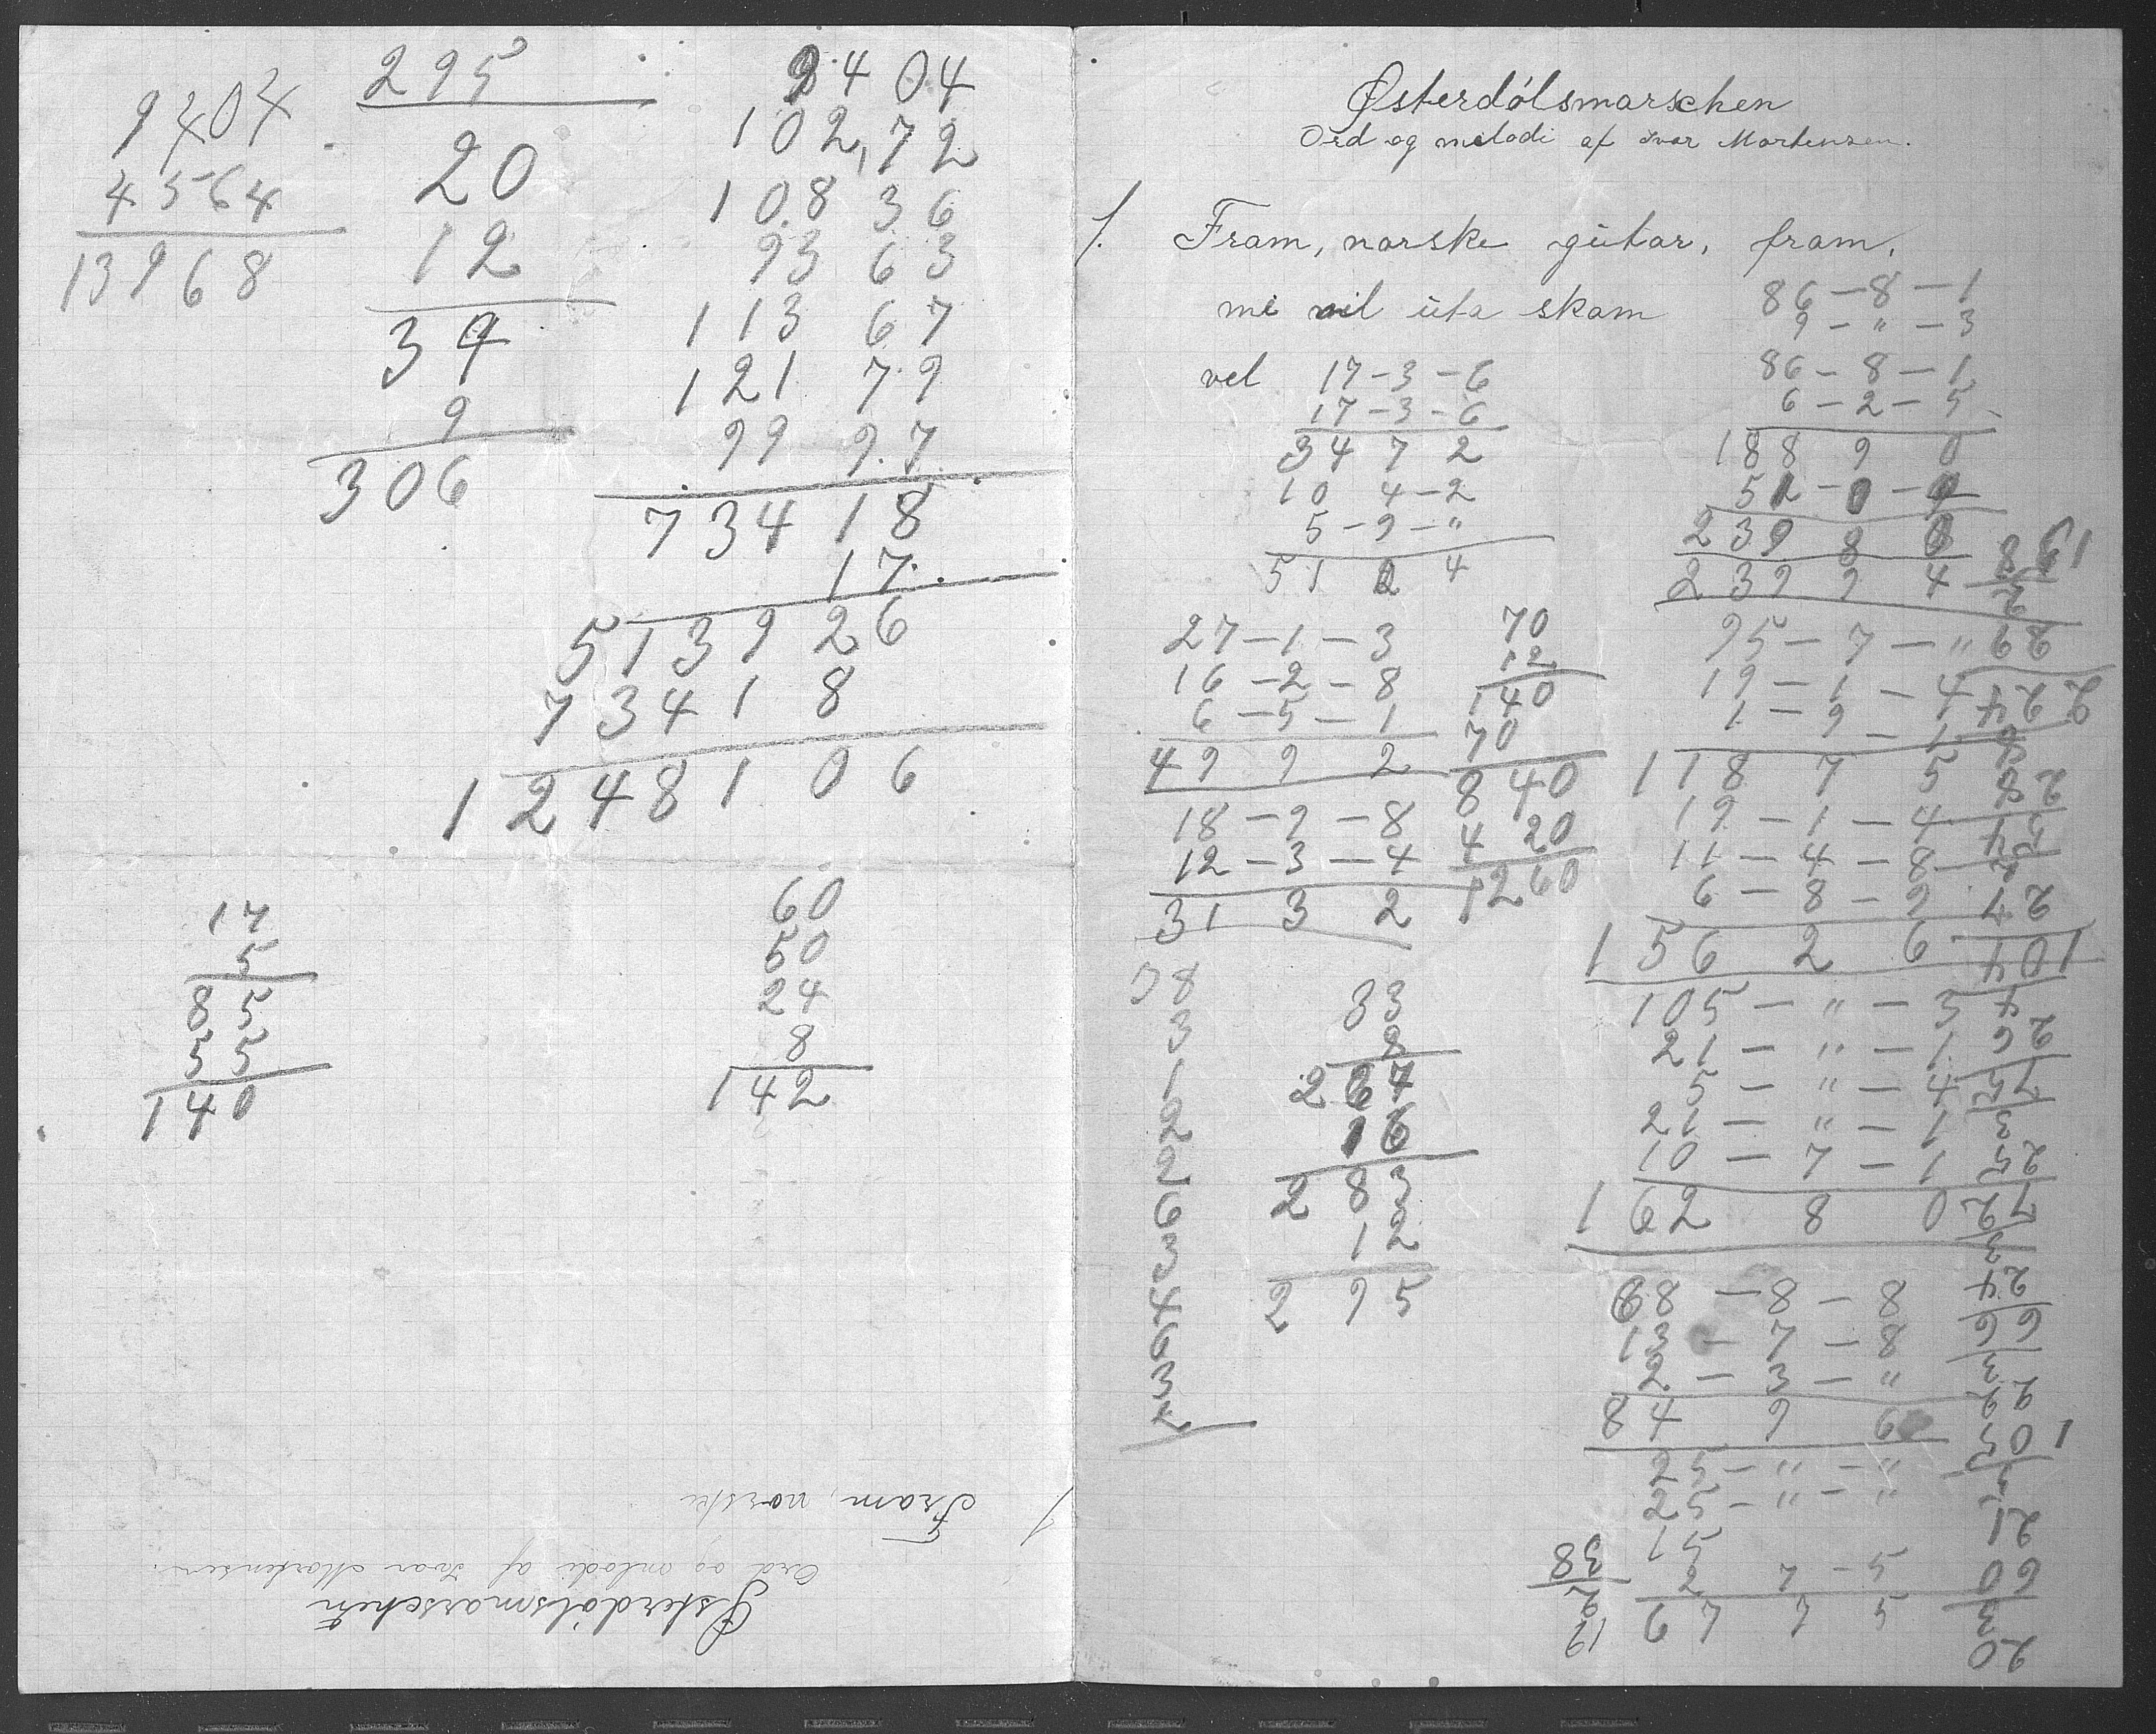 295
20
12
34
9
306
9404
4564
13968
9404
102,72
108 36
93 63
113 67
121 79
99 97
734 18
17
5139 26
7341 8
12481 06
17
5
85
55
140
60
50
24
8
142
Østerdólsmarschen
Ord og melodi af Ivar Mortensen.
1. Fram, norske
Østerdólsmarschen
Ord og melodi af Ivar Mortensen.
1. Fram, norske gùtar, fram,
me vil ùta skam
vel
17-3-6
17-3-6
34 7 2
10 4-2
5-9-"
51 2 4
27-1-3
16-2-8
6-5-1
49 9 2
18-9-8
12-3-4
31 3 2
70
12
140
70
840
4 20
1260
3
1
2
2
6
3
4
6
3
33
8
267
16
283
12
295
86-8-1
9-"-3
86-8-1
6-2-5
188 9 0
239 9 4
95-7-"
19-1-4
118 7 5
19-1-4
11-4-8
6-8-6
156 2 6
105-"-3
21-"-1
5-"-4
21-"-1
10-7-1
162 8 0
68-8-8
13-7-8
2-3-"
84 9 6
25-"-"
25-"-"
15
2 7-5
67 7 5
19
2
38
20
3
60
21